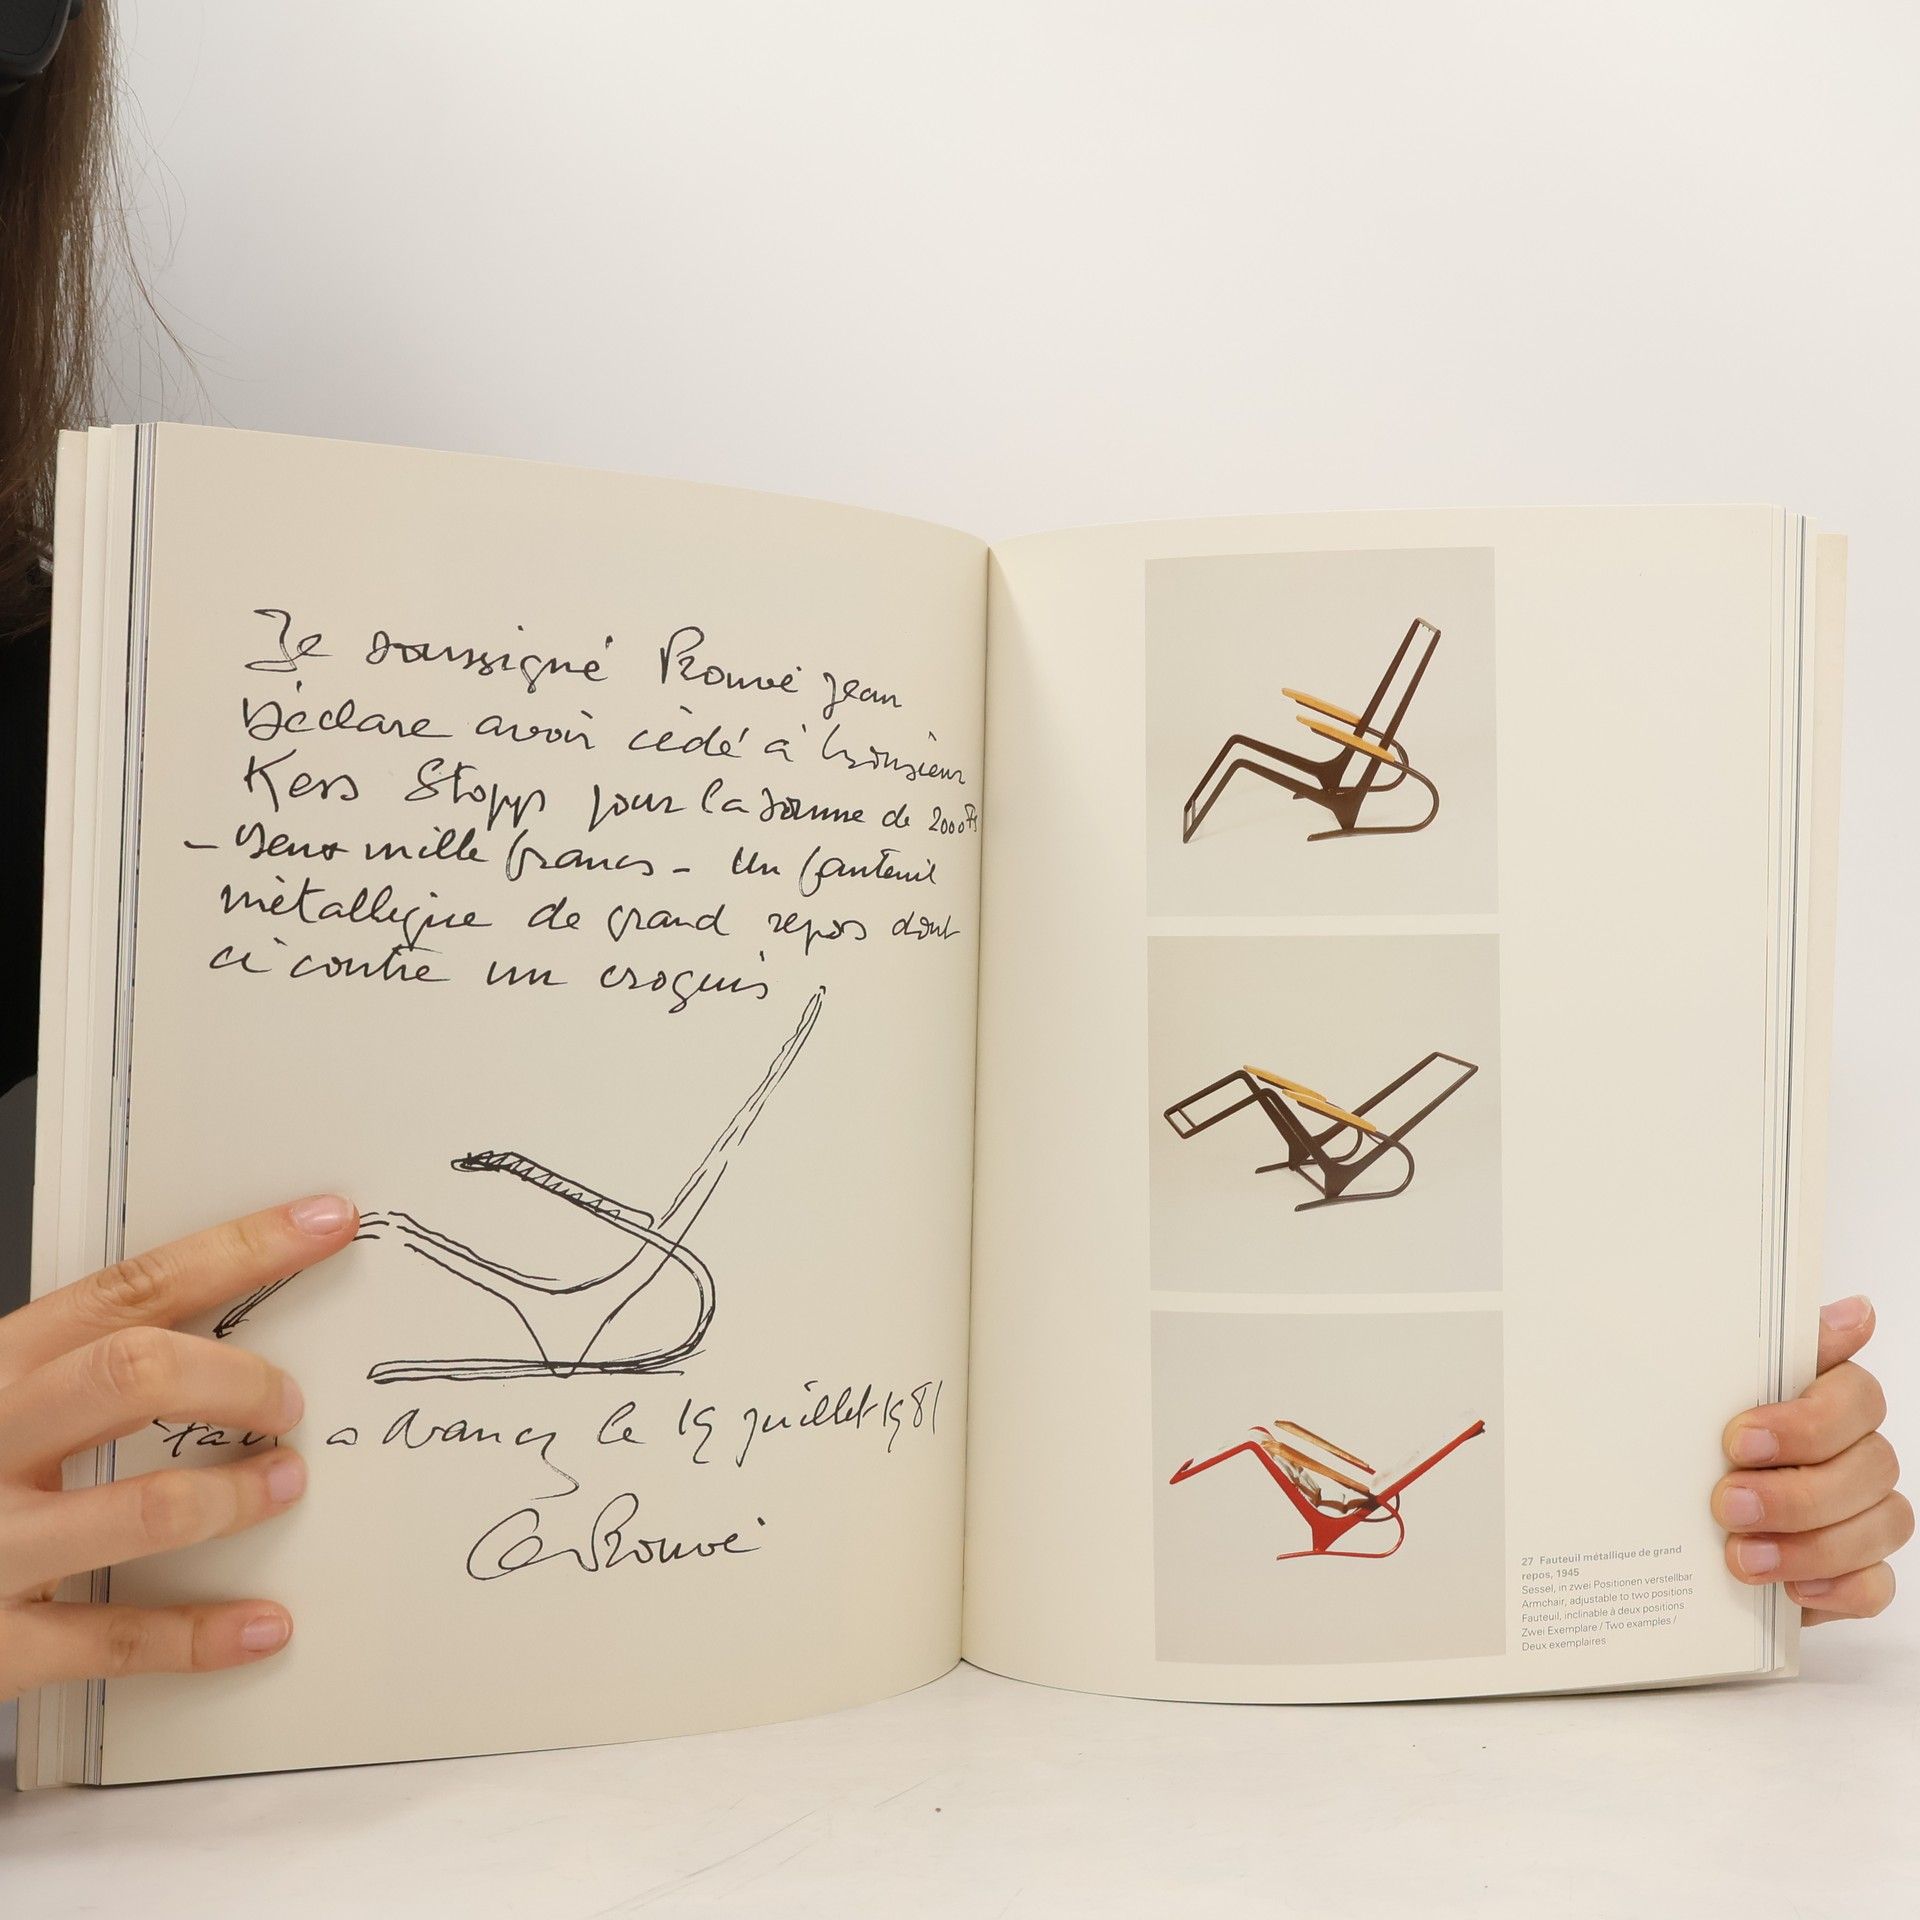 Je soussigné Prouvé Jean
Déclare avoir cédé à Monsieur
Kess Stopp pour la somme de 2000 Frs
- Deux mille francs - un fauteuil
métallique de grand repos dont
ci contre un croquis
Fait a Nancy le 19 juillet 1981
Prouvé
27 Fauteuil métallique de grand
repos, 1945
Sessel, in zwei Positionen verstellbar
Armchair, adjustable to two positions
Fauteuil, inclinable à deux positions
Zwei Exemplare / Two examples /
Deux exemplaires